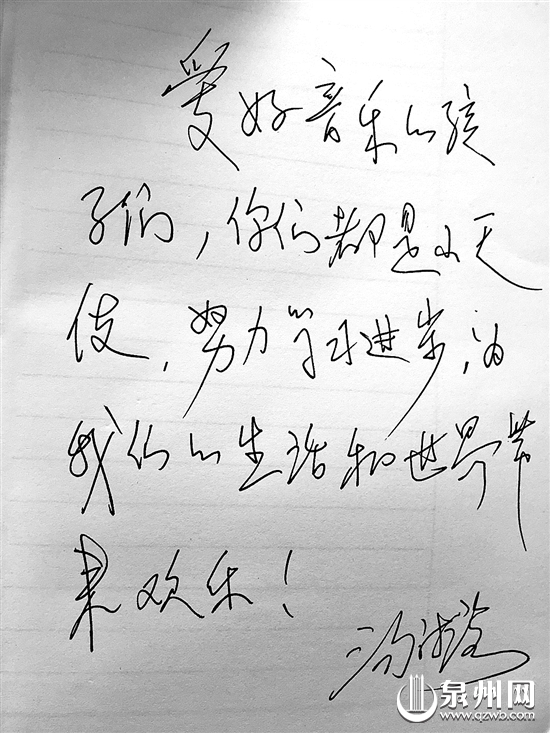 爱好音乐的孩
子们，你们都是小天
使，努力学习进步，为
我们的生活和世界带
来欢乐！
泉州网
www.qzwb.com